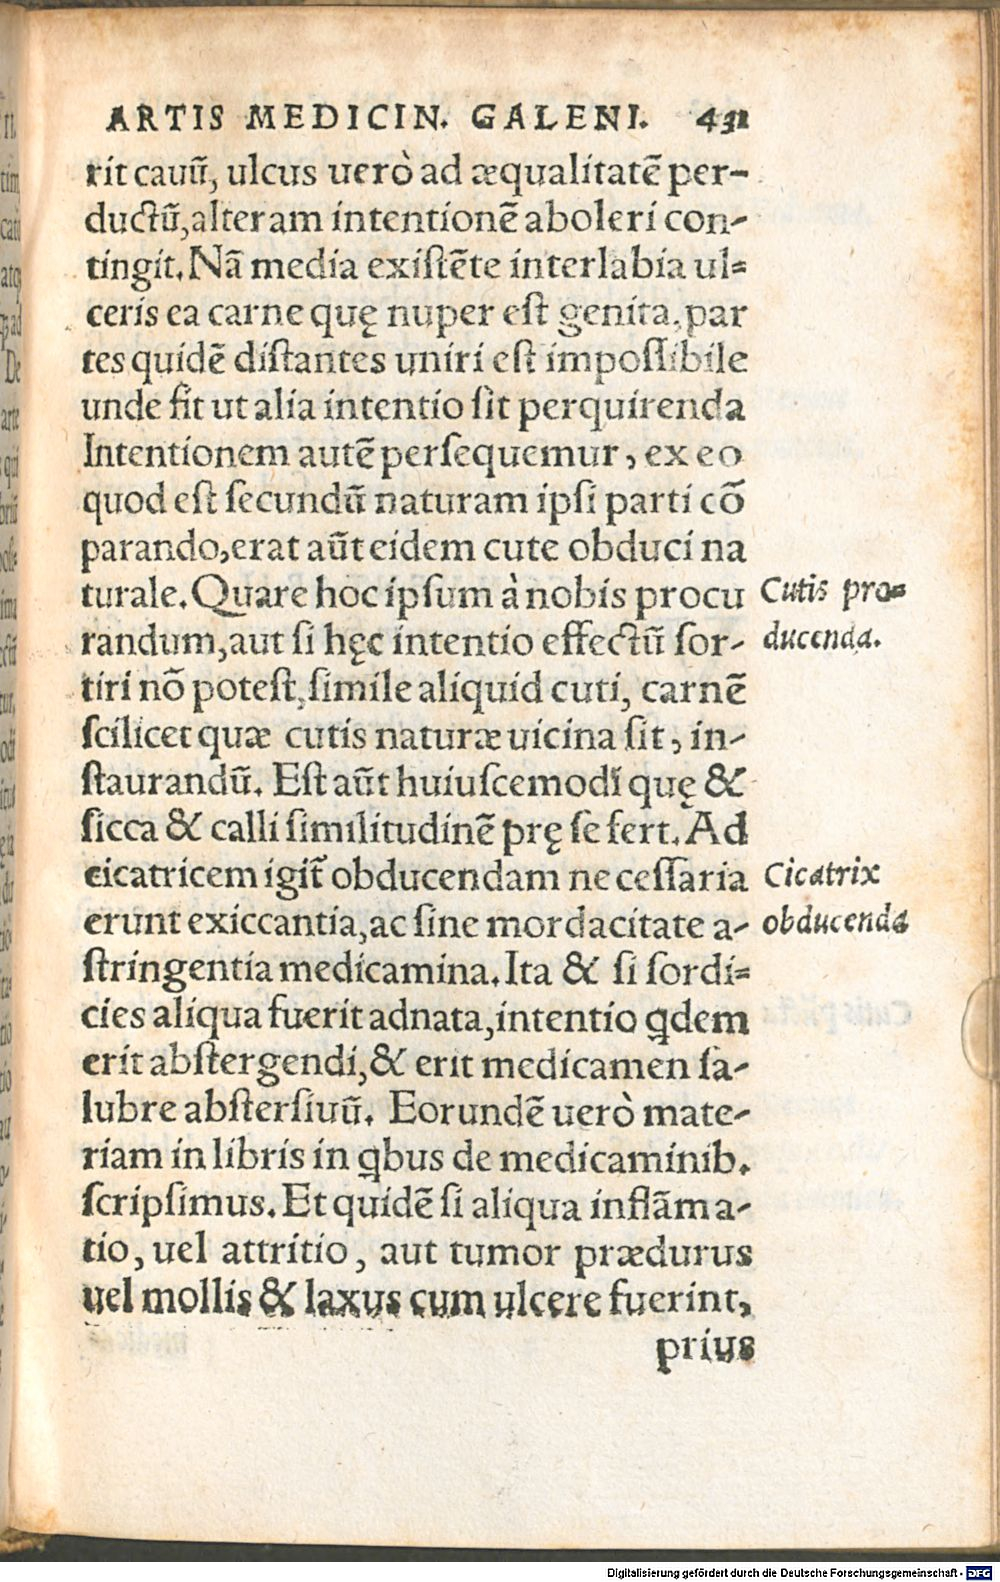 ARTIS MEDICIN. GALENI. 431
rit cauū, ulcus uerò ad æqualitatē per-
ductū, alteram intentionē aboleri con-
tingit. Nā media existēte inter labia ul=
ceris ea carne quę nuper est genita, par
tes quidē distantes uniri est impossibile
unde fit ut alia intentio sit perquirenda
Intentionem autē persequemur, ex eo
quod est secundū naturam ipsi parti cō
parando, erat aūt eidem cute obduci na
turale. Quare hoc ipsum à nobis procu
Cutis pro=
randum, aut si hęc intentio effectū sor-
ducenda.
tiri nō potest, simile aliquid cuti, carnē
scilicet quæ cutis naturæ uicina sit, in-
staurandū. Est aūt huiuscemodi quę &
sicca & calli similitudinē prę se fert. Ad
cicatricem igit̄ obducendam necessaria
Cicatrix
erunt exiccantia, ac sine mordacitate a-
obducenda
stringentia medicamina. Ita & si sordi=
cies aliqua fuerit adnata, intentio q̃dem
erit abstergendi, & erit medicamen sa-
lubre abstersiuū. Eorundē uerò mate-
riam in libris in q̃bus de medicaminib.
scripsimus. Et quidē si aliqua inflāma-
tio, uel attritio, aut tumor prædurus
uel mollis & laxus cum ulcere fuerint,
prius
Digitalisierung gefördert durch die Deutsche Forschungsgemeinschaft - DFG